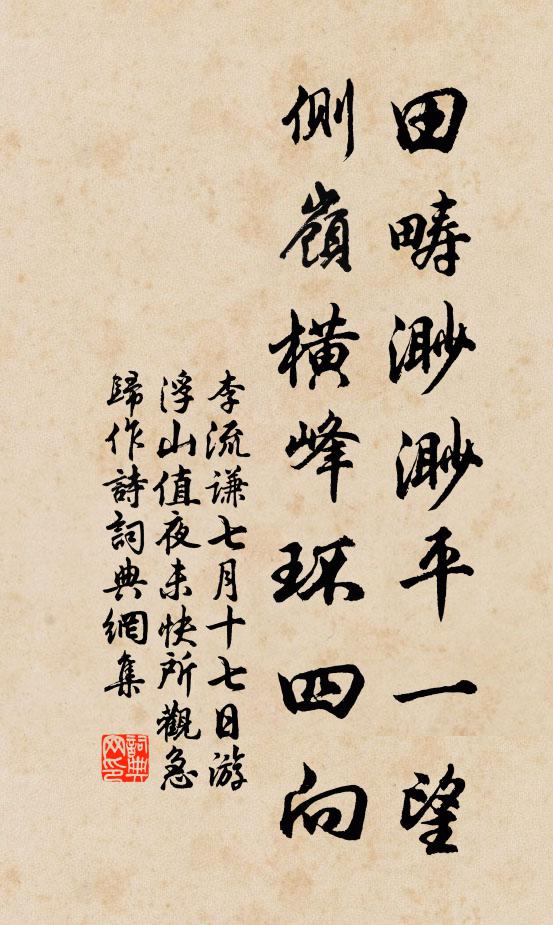 田疇渺渺平一望
側嶺橫峰环四向
李流谦七月十七日游
浮山值夜未快所觀急
歸作詩詞典網集
詞典
网印